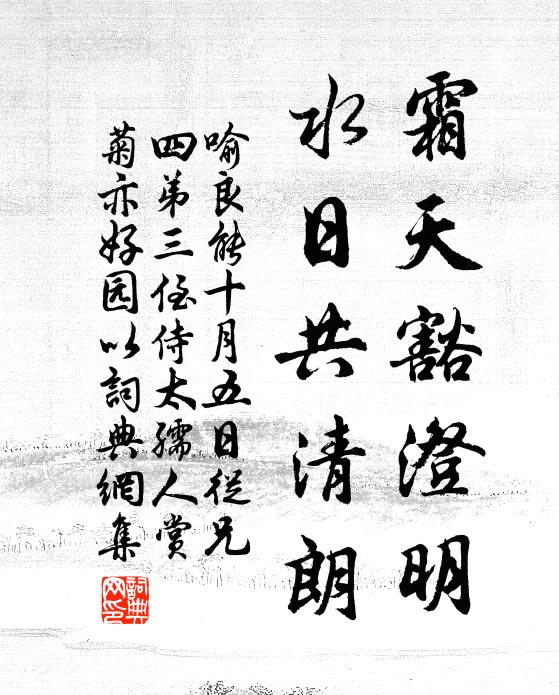 霜天豁澄明
水日共清朗
喻良能十月五日從兄
四弟三侄侍太孺人賞
菊亦好园以詞典網集
詞典網印